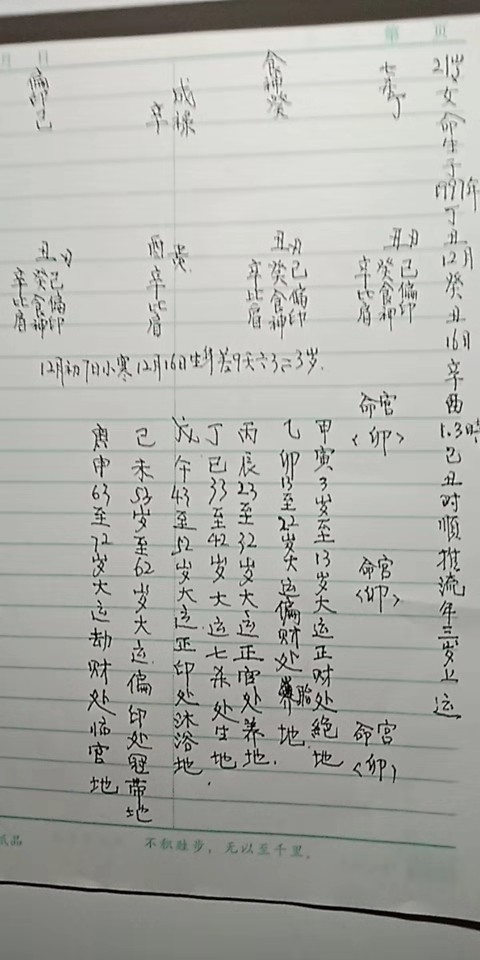 月 日 第 页
21岁女命生于1997年丁丑12月癸丑16日辛酉1.3時己丑时順推流年三岁上运
七杀丁
食神癸
辛
偏印己
丑
己偏印
癸食神
辛比肩
丑
己偏印
癸食神
辛比肩
酉
辛比肩
丑
己偏印
癸食神
辛比肩
12月初7日小寒12月16日生
命宫
<卯>
命宫
<卯>
命宫
<卯>
甲寅3岁至13岁大运正财处絕地
乙卯13至22岁大运偏财处胎地
丙辰23至32岁大运正官处养地.
丁巳33至42岁大运七杀处生地.
戊午43至52岁大运正印处沐浴地
己未53岁至62岁大运偏印处冠帶地
庚申63至72岁大运劫财处临官地
纸品 不积跬步，无以至千里。